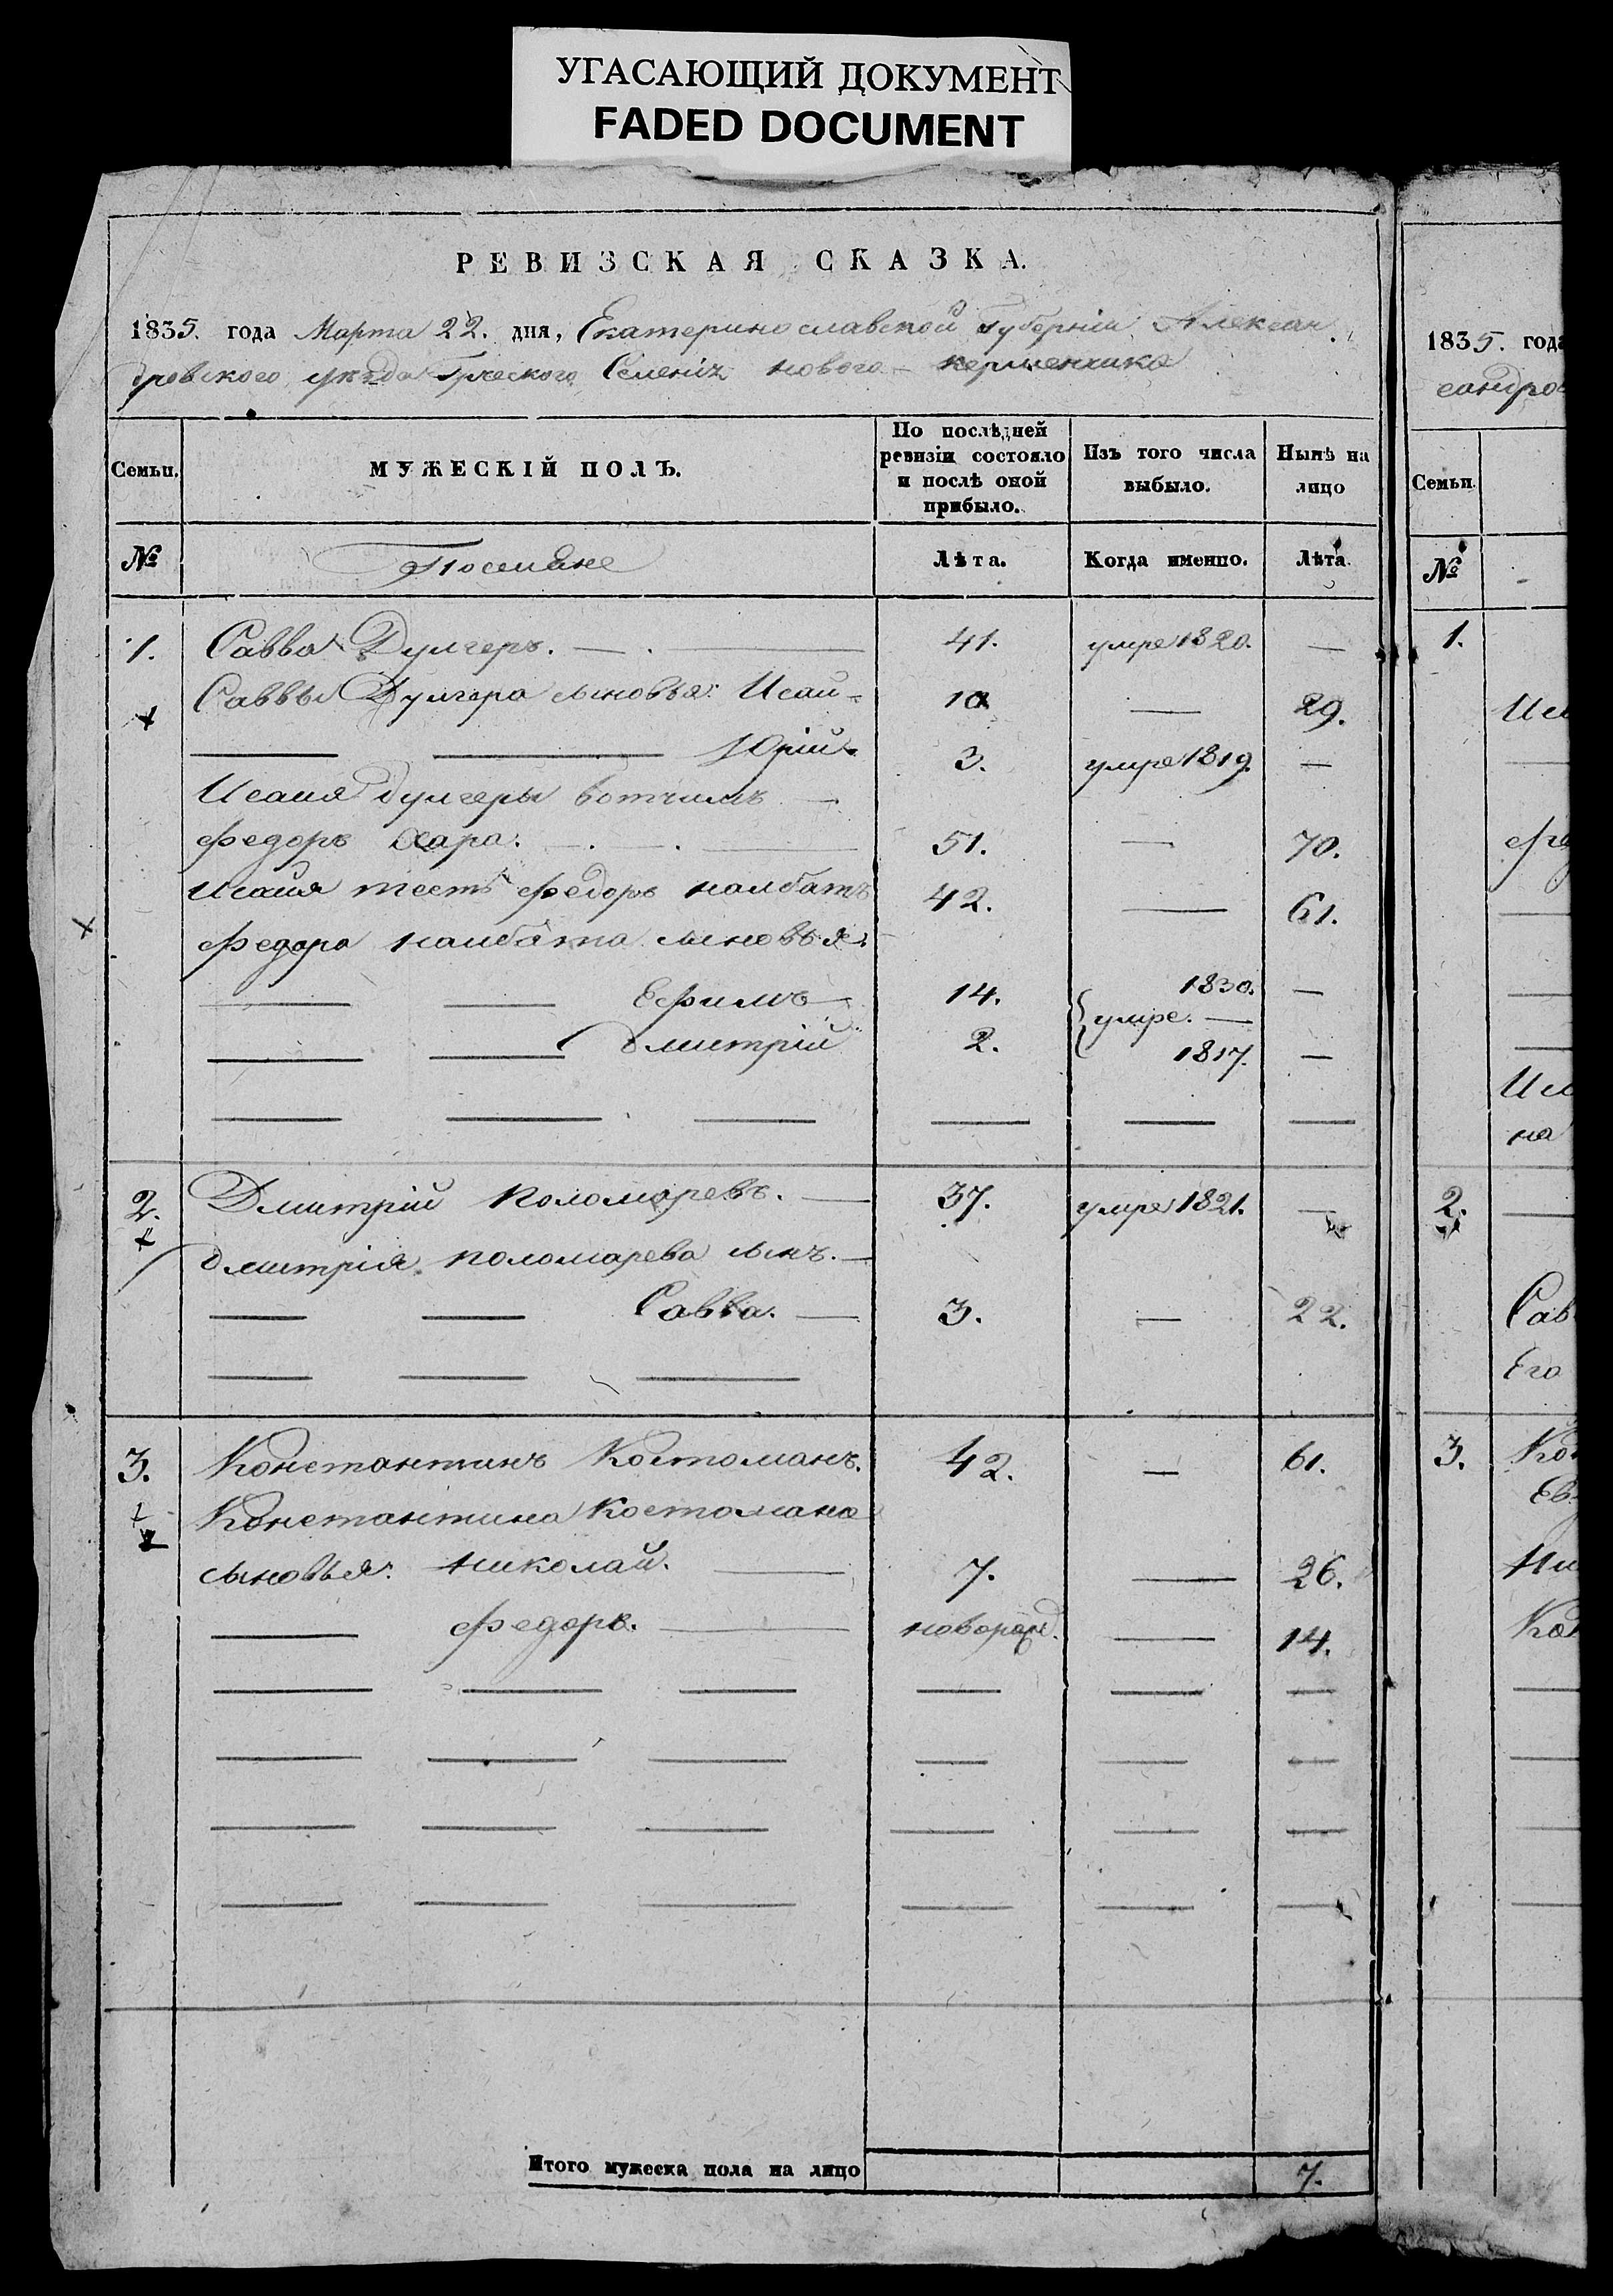 УГАСАЮЩИЙ ДОКУМЕНТ
FADED DOCUMENT
РЕВИЗСКАЯ СКАЗКА.
1835. года Марта 22. дня, Екатеринославской Губерніи Алексан
дровского уѣзда Греческого Селенія нового - керменчика
Семьи. МУЖЕСКІЙ ПОЛЪ. По послѣдней ревизіи состояло и послѣ оной прибыло. Изъ того числа выбыло. Нынѣ на лицо
№ Поселяне Лѣта. Когда именно. Лѣта.
1. Савва Дулгеръ. — 41. умре 1820. —
Саввы Дулгера сыновья: Исаи- 10 — 29.
— — Юрій. 3. умре 1819. —
Исаия дулгеры вотчимъ —
федоръ Хара: — 51. — 70.
Исаия тесть федоръ калбатъ 42. — 61.
федора калбата сыновья:
— — Ефимъ — 14. умре. 1830. —
— — дмитрій 2. — 1817. —
— — — — — —
2. Дмитрій поломаревъ. — 37. умре 1821. —
дмитрія поломарева сынъ. —
— — Савва. — 3. — 22.
— — —
3. Константинъ Костоманъ. 42. — 61.
Константина Костомана
сыновья: николай. — 7. — 26.
— федоръ. — новорожд. — 14.
— — — — — —
— — — — — —
— — — — — —
— — — — — —
Итого мужеска пола на лицо 7.
1835. года
сандров
Семьи.
№
1.
Иса
на
2.
Сав
Его
3. Кон
Ни
Кон